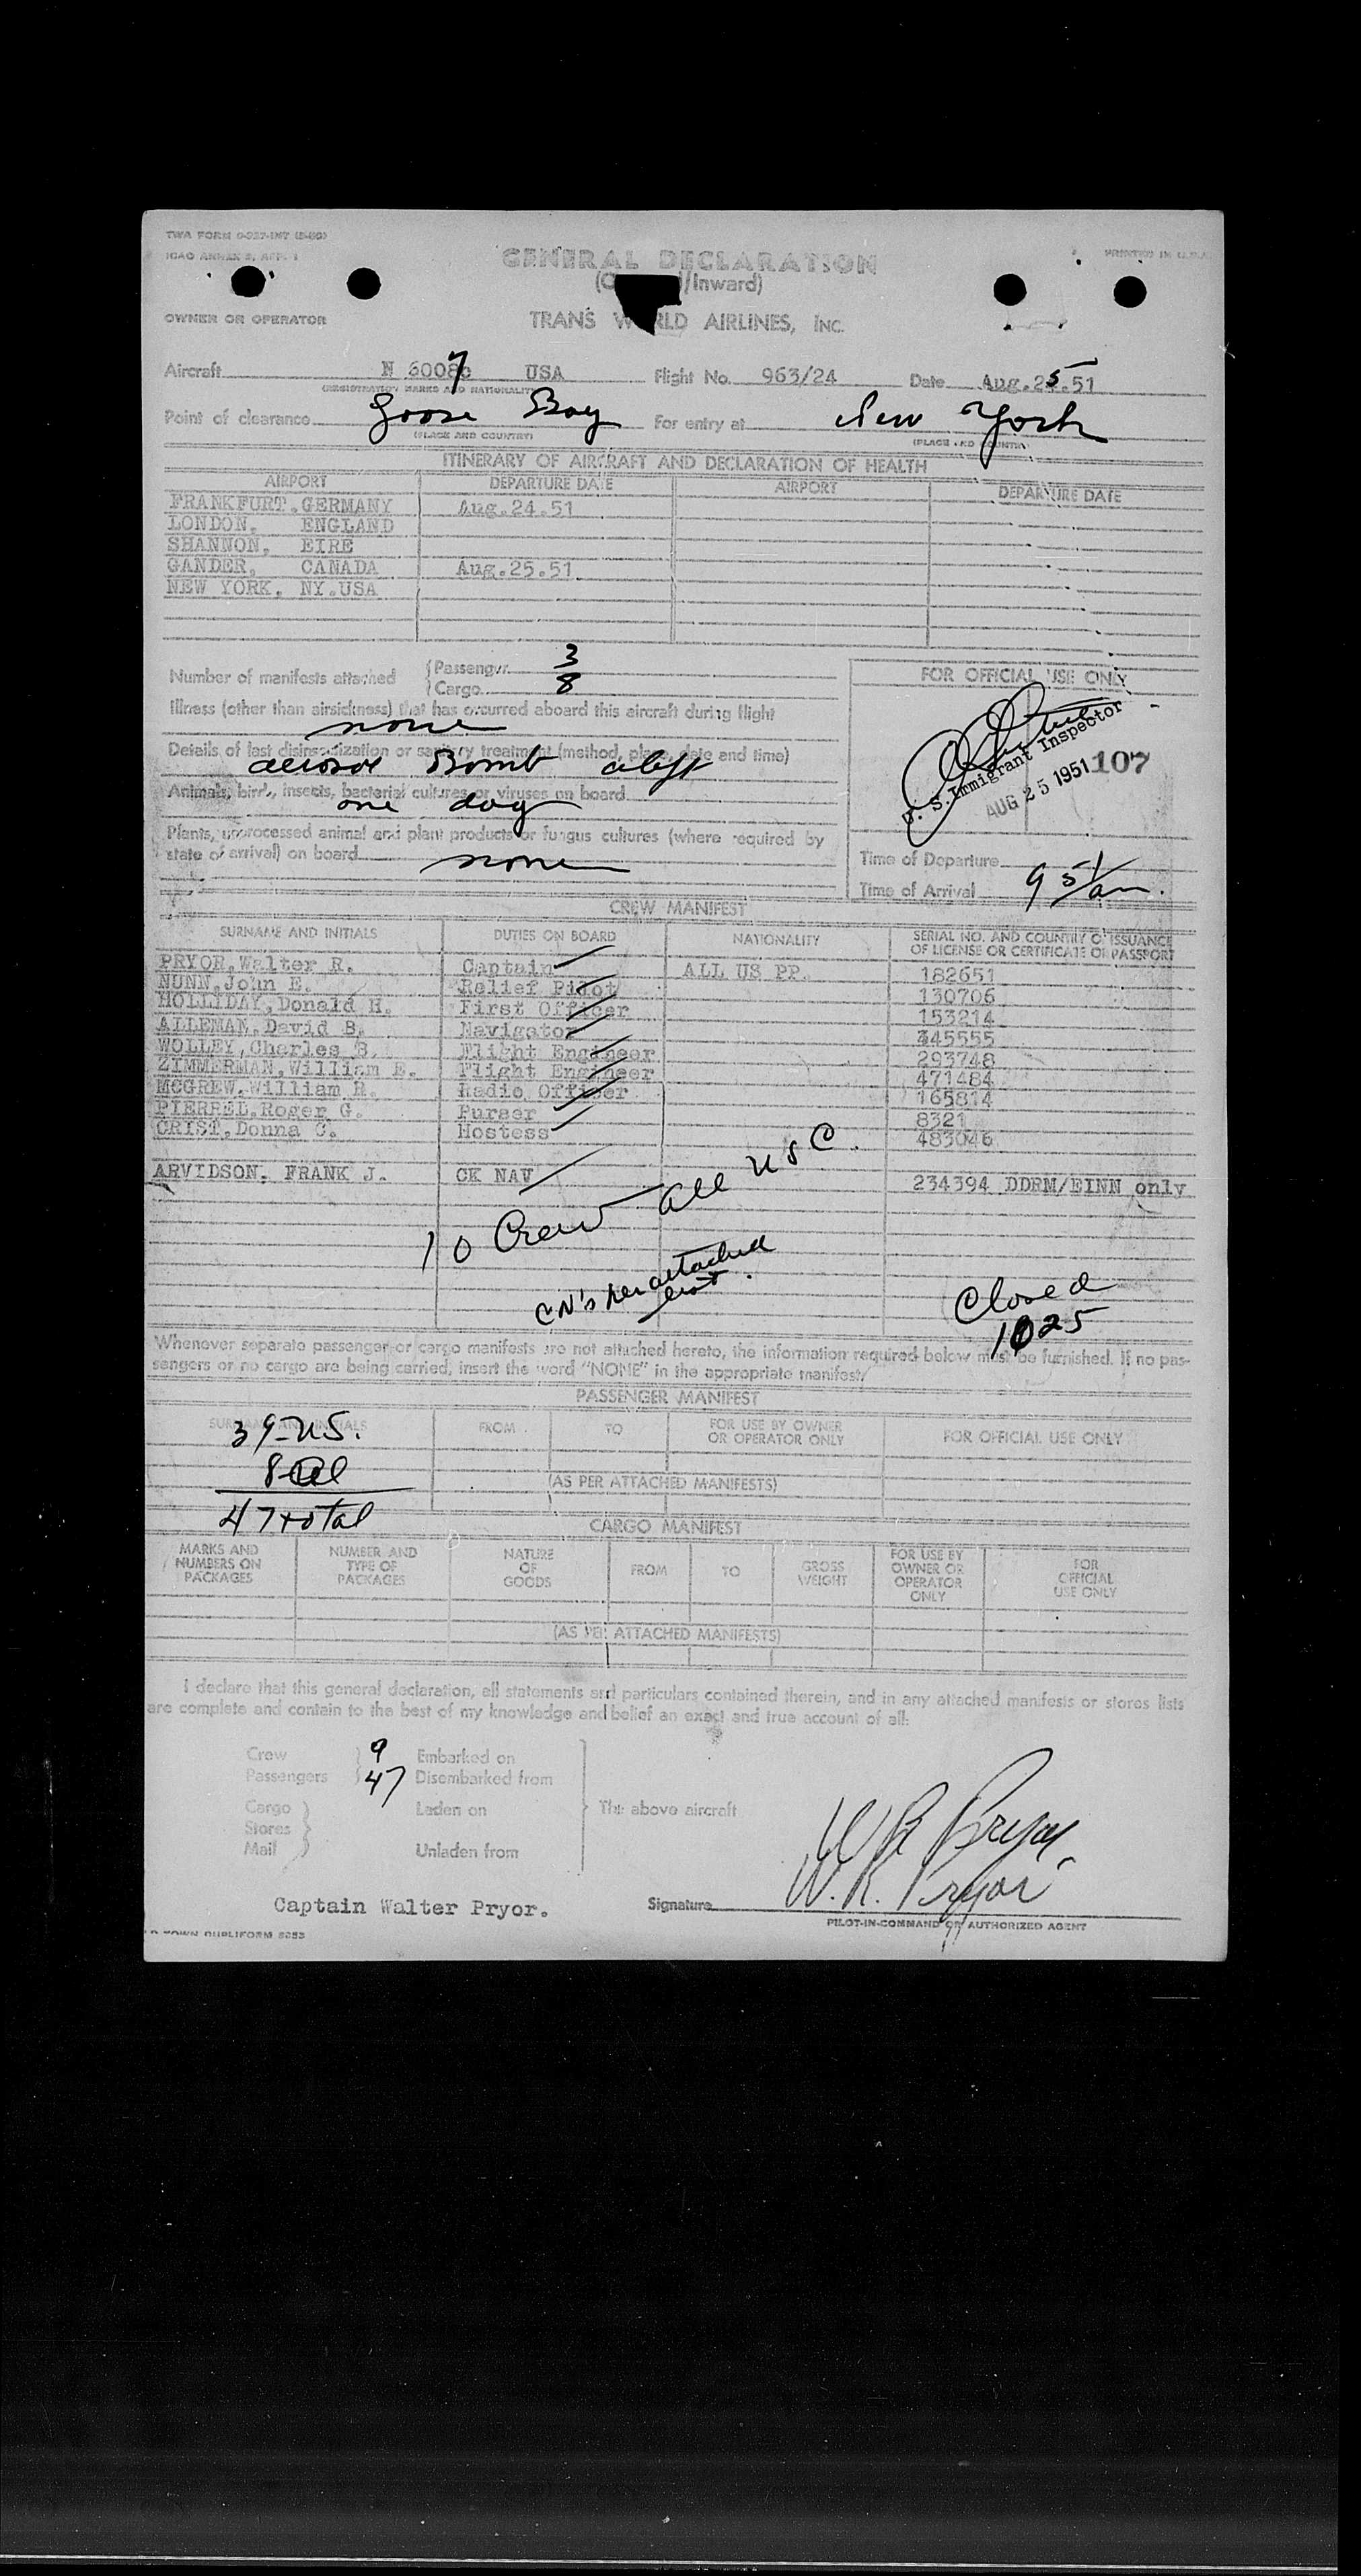 TWA FORM
ICAO ANNEX
GENERAL DECLARATION
PRINTED IN U.S.A.
/Inward)
OWNER OR OPERATOR
TRANS WORLD AIRLINES, INC.
Aircraft N 6008 7 USA Flight No. 963/24 Date Aug.25.51
(REGISTRATION MARKS AND NATIONALITY)
Point of clearance Goose Bay For entry at New York
(PLACE AND COUNTRY) (PLACE AND COUNTRY)
ITINERARY OF AIRCRAFT AND DECLARATION OF HEALTH
AIRPORT DEPARTURE DATE AIRPORT DEPARTURE DATE
FRANKFURT.GERMANY Aug.24.51
LONDON. ENGLAND
SHANNON, EIRE
GANDER, CANADA Aug.25.51
NEW YORK, NY.USA
Number of manifests attached
Passenger 3
Cargo 8
FOR OFFICIAL USE ONLY
Illness (other than airsickness) that has occurred aboard this aircraft during flight
none
Details of last disinsectization or sanitary treatment (method, place, date and time)
aerosol Bomb
U. S. Immigrant Inspector
AUG 25 1951 107
Animals, birds, insects, bacterial cultures or viruses on board
one dog
Plants, unprocessed animal and plant products or fungus cultures (where required by
state of arrival) on board
none
Time of Departure
Time of Arrival 9 51 am.
CREW MANIFEST
SURNAME AND INITIALS DUTIES ON BOARD NATIONALITY SERIAL NO. AND COUNTRY OF ISSUANCE
OF LICENSE OR CERTIFICATE OR PASSPORT
PRYOR,Walter R. Captain ALL US PP. 182651
NUNN,John E. Relief Pilot 130706
HOLLIDAY,Donald H. First Officer 153214
ALLEMAN,David B. Navigator 345555
WOLLEY,Charles S. Flight Engineer 293748
ZIMMERMAN,William E. Flight Engineer 471484
MCGREW,William R. Radio Officer 165814
PIERREL,Roger G. Purser 8321
CRIST,Donna C. Hostess 483046
ARVIDSON. FRANK J. CK NAV 234394 DDRM/EINN only
10 Crew all USC.
CN's per attached
list.
Closed
1025
Whenever separate passenger or cargo manifests are not attached hereto, the information required below must be furnished. If no pas-
sengers or no cargo are being carried, insert the word "NONE" in the appropriate manifest.
PASSENGER MANIFEST
SURNAME AND INITIALS FROM TO FOR USE BY OWNER
OR OPERATOR ONLY FOR OFFICIAL USE ONLY
39-U.S.
8-al
47 total
(AS PER ATTACHED MANIFESTS)
CARGO MANIFEST
MARKS AND
NUMBERS ON
PACKAGES
NUMBER AND
TYPE OF
PACKAGES
NATURE
OF
GOODS
FROM
TO
GROSS
WEIGHT
FOR USE BY
OWNER OR
OPERATOR
ONLY
FOR
OFFICIAL
USE ONLY
(AS PER ATTACHED MANIFESTS)
I declare that this general declaration, all statements and particulars contained therein, and in any attached manifests or stores lists
are complete and contain to the best of my knowledge and belief an exact and true account of all:
Crew 9 Embarked on
Passengers 47 Disembarked from
Cargo Laden on The above aircraft
Stores
Mail Unladen from
W R Pryor
W. R. Pryor
Captain Walter Pryor. Signature
PILOT-IN-COMMAND OR AUTHORIZED AGENT